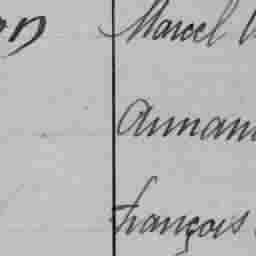 on Marcel
Arman
François